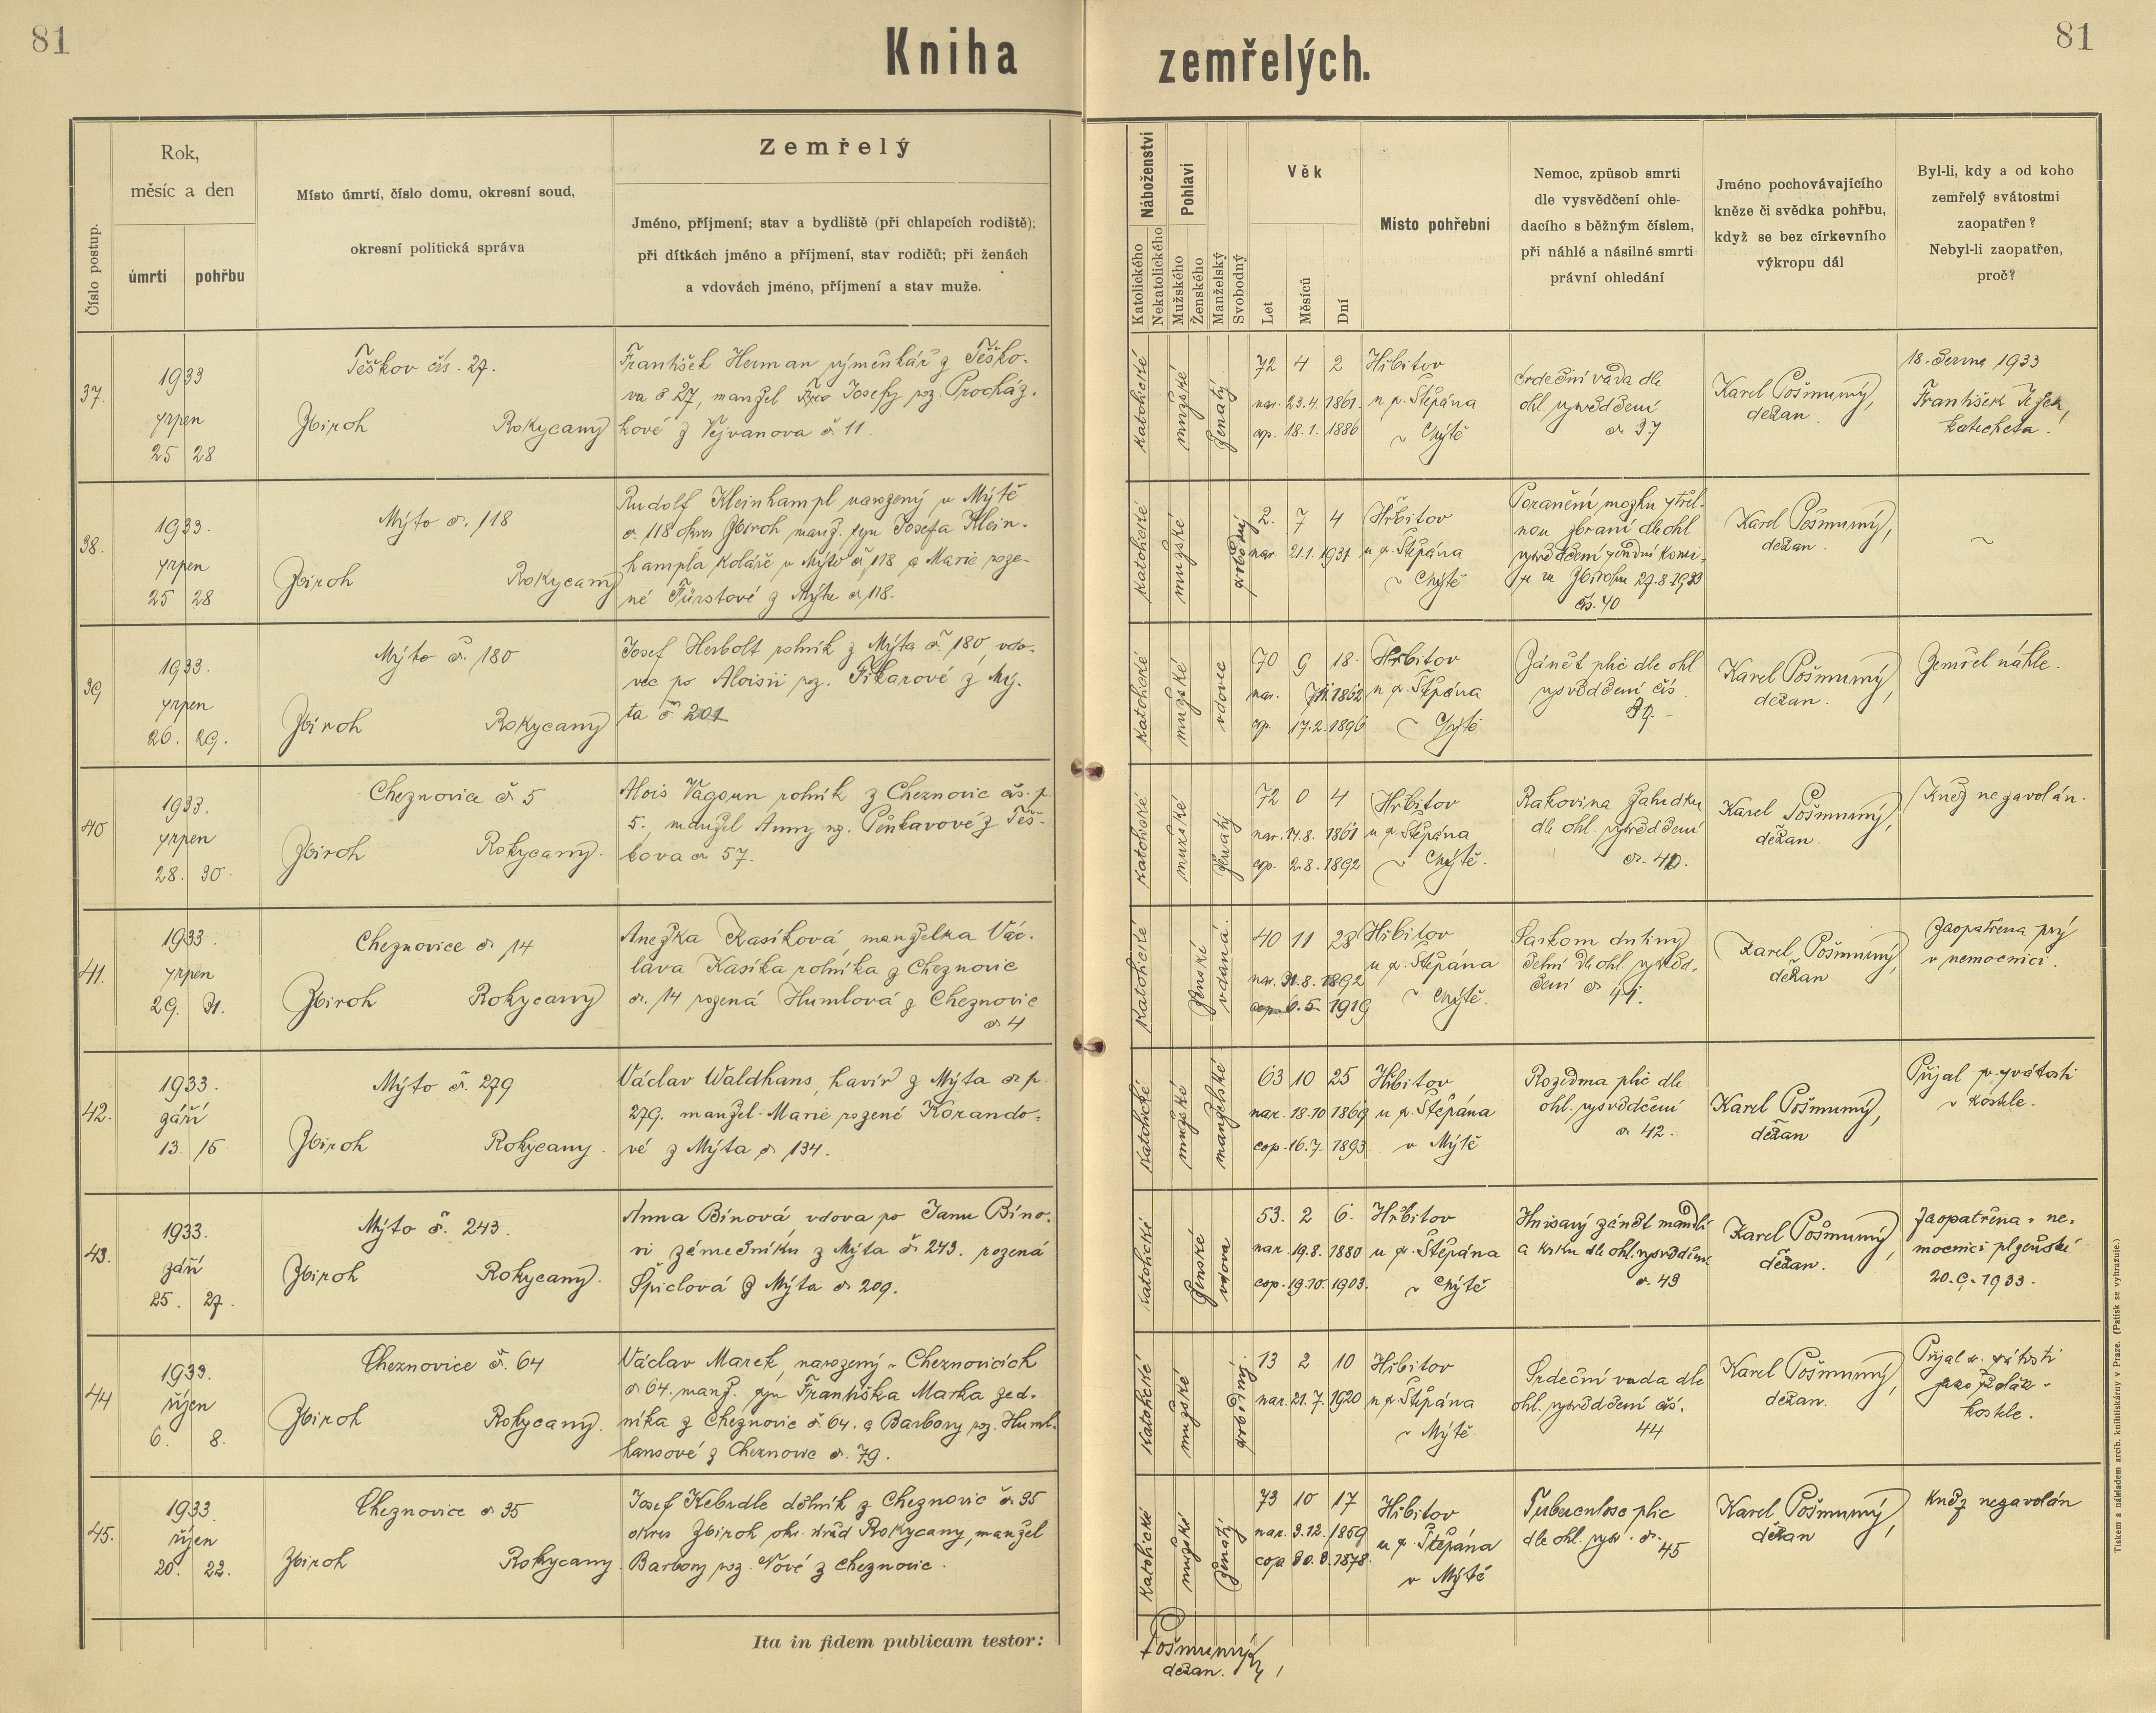 81
Kniha zemřelých.
81
Číslo postup.
Rok,
měsíc a den
úmrtí
pohřbu
Místo úmrtí, číslo domu, okresní soud,
okresní politická správa
Zemřelý
Jméno, příjmení; stav a bydliště (při chlapcích rodiště);
při dítkách jméno a příjmení, stav rodičů; při ženách
a vdovách jméno, příjmení a stav muže.
Náboženství
Katolického
Nekatolického
Pohlaví
Mužského
Ženského
Manželský
Svobodný
Věk
Let
Měsíců
Dní
Místo pohřební
Nemoc, způsob smrti
dle vysvědčení ohle-
dacího s běžným číslem,
při náhlé a násilné smrti
právní ohledání
Jméno pochovávajícího
kněze či svědka pohřbu,
když se bez církevního
výkropu dál
Byl-li, kdy a od koho
zemřelý svátostmi
zaopatřen?
Nebyl-li zaopatřen,
proč?
37.
1933
srpen
25 28
Těškov čís. 27.
Zbiroh Rokycany
František Herman výměnkář z Těško-
va č 27, manžel Josefy roz. Procház-
kové z Vejvanova č. 11.
katolické
mužské
ženatý
72 4 2
nar. 23.4. 1861.
op. 18.1. 1886
Hřbitov
u sv. Štěpána
v Mýtě
Srdeční vada dle
ohl. vysvědčení
č. 37
Karel Pošmurný,
děkan.
18. června 1933
František
katecheta.
38.
1933.
srpen
25 28
Mýto č. 118
Zbiroh Rokycany
Rudolf Kleinhampl narozený v Mýtě
č. 118 okres Zbiroh manž. syn Josefa Klein-
hampla koláře v Mýtě č. 118 a Marie roze-
né Fürstové z Mýta č. 118.
katolické
mužské
svobodný
2. 7 4
nar. 21.1. 1931
Hřbitov
u sv. Štěpána
v Mýtě
Poranění mozku střel-
nou zbraní dle ohl.
vysvědčení soudní komi-
se ze Zbirohu 27.8.1933
čís. 40
Karel Pošmurný,
děkan.
~
39
1933.
srpen
26. 29.
Mýto č. 180
Zbiroh Rokycany
Josef Herbolt rolník z Mýta č. 180, vdo-
vec po Aloisii roz. Fikarové z Mý-
ta č. 201
katolické
mužské
vdovec
70 9 18.
nar. 1862
op. 17.2. 1896
Hřbitov
u sv. Štěpána
v Mýtě
Zánět plic dle ohl.
vysvědčení čís.
39.-
Karel Pošmurný,
děkan.
Zemřel náhle.
40
1933.
srpen
28. 30.
Cheznovice č. 5
Zbiroh Rokycany.
Alois Vágoun rolník z Cheznovic čís. p.
5., manžel Anny roz. Pěnkavové z Těš-
kova č. 57.
katolické
mužské
ženatý
72 0 4
nar. 14.8. 1861
cop. 2.8. 1892
Hřbitov
u sv. Štěpána
v Mýtě.
Rakovina žaludku
dle ohl. vysvědčení
č. 40.
Karel Pošmurný,
děkan.
Kněz nezavolán.
41.
1933.
srpen
29. 31.
Cheznovice č. 14
Zbiroh Rokycany
Anežka Kasíková, manželka Vác-
lava Kasíka rolníka z Cheznovic
č. 14 rozená Humlová z Cheznovic
č. 4
katolické
ženské
vdaná.
40 11 28
nar. 31.8. 1892
cop. 6.5. 1919
Hřbitov
u sv. Štěpána
v Mýtě.
Sarkom dutiny
čelní dle ohl. vysvěd-
čení č. 41.
Karel Pošmurný,
děkan
Zaopatřena prý
v nemocnici.
42.
1933.
září
13. 15
Mýto č. 279
Zbiroh Rokycany.
Václav Waldhans, havíř z Mýta č. p.
279. manžel Marie rozené Korando-
vé z Mýta č. 134.
katolické
mužské
manželské
63 10 25
nar. 18.10 1869
cop. 16.7. 1893.
Hřbitov
u sv. Štěpána
v Mýtě
Rozedma plic dle
ohl. vysvědčení
č. 42.
Karel Pošmurný,
děkan
Přijal sv. svátosti
v kostele.
43.
1933.
září
25. 27.
Mýto č. 243.
Zbiroh Rokycany.
Anna Bínová, vdova po Janu Bíno-
vi zámečníku z Mýta č. 243. rozená
Špiclová z Mýta č. 209.
katolické
ženské
vdova
53. 2 6.
nar. 19.8. 1880
cop. 19.10. 1903.
Hřbitov
u sv. Štěpána
v Mýtě
Hnisavý zánět mandlí
a krku dle ohl. vysvědčení
č. 43
Karel Pošmurný,
děkan.
Zaopatřena v ne-
mocnici plzeňské
20.9.1933.
44
1933.
říjen
6. 8.
Cheznovice č. 64
Zbiroh Rokycany.
Václav Marek, narozený v Cheznovicích
č 64. manž. syn Františka Marka zed-
níka z Cheznovic č. 64. a Barbory roz. Huml-
hansové z Cheznovic č. 79.
katolické
mužské
svobodný.
13 2 10
nar. 21.7. 1920
Hřbitov
u sv. Štěpána
v Mýtě
Srdeční vada dle
ohl. vysvědčení čís.
44
Karel Pošmurný,
děkan.
Přijal sv. svátosti
jako školák v
kostele.
45.
1933.
říjen
20. 22.
Cheznovice č. 35
Zbiroh Rokycany.
Josef Kebrdle dělník z Cheznovic č. 35
okres Zbiroh okr. úřad Rokycany, manžel
Barbory roz. Nové z Cheznovic.
katolické
mužské
ženatý
73 10 17
nar. 3.12. 1859
cop. 1878.
Hřbitov
u sv. Štěpána
v Mýtě
Tuberculose plic
dle ohl. vysv. č. 45
Karel Pošmurný,
děkan
Kněz nezavolán
Ita in fidem publicam testor:
Pošmurný
děkan.
Tiskem a nákladem arcib. knihtiskárny v Praze. (Patisk se vyhrazuje.)